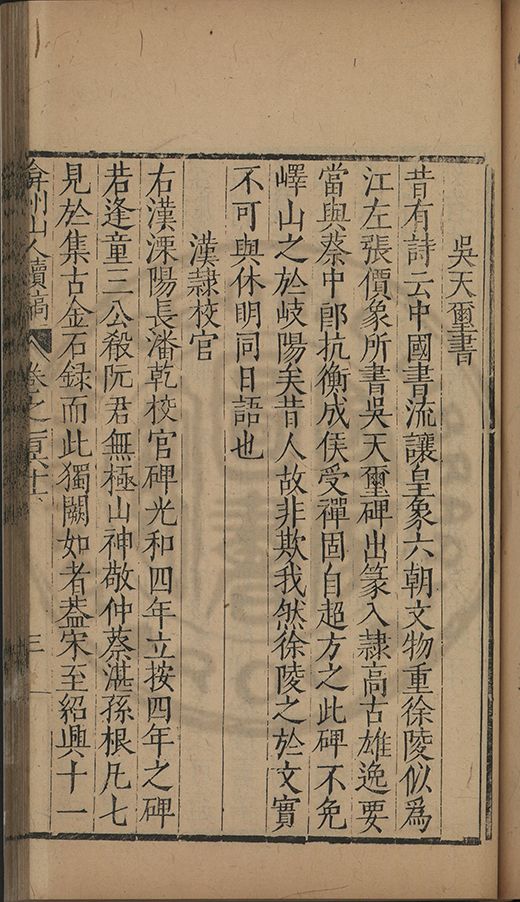 吳天璽書
昔有詩云中國書流讓皇象六朝文物重徐陵似爲
江左張價象所書吳天璽碑出篆入隸高古雄逸要
當與蔡中郎抗衡成侯受禪固自超方之此碑不免
嶧山之於岐陽矣昔人故非欺我然徐陵之於文實
不可與休明同日語也
漢隸校官
右漢溧陽長潘乾校官碑光和四年立按四年之碑
若逢童三公殽阮君無極山神敬仲蔡湛孫根凡七
見於集古金石録而此獨闕如者蓋宋至紹興十一
弇州山人續稿 卷之一百六十六 三